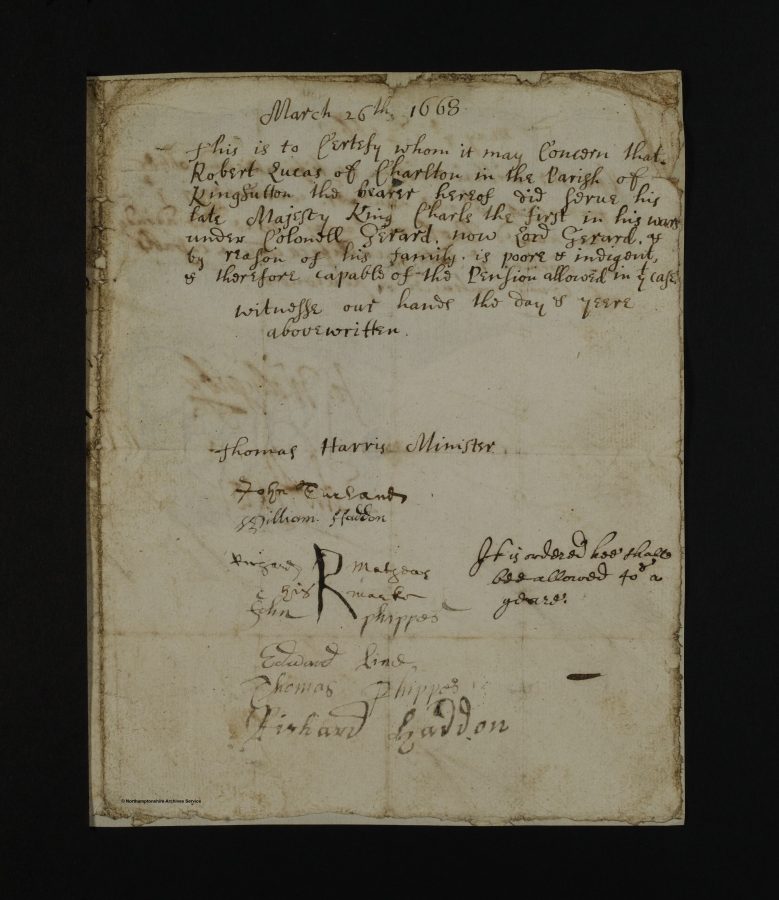 March 26th, 1668
This is to Certefy whom it may Concern that
Robert Lucas of Charlton in the Parish of
Kingsutton the bearer hereof did serue his
late Majesty King Charls the first in his wars
under Colonell Gerard, now Lord Gerard, &
by reason of his family is poore & indigent,
& therefore capable of the Pension allowed in yt case
witnesse our hands the day & yeere
abovewritten.
Thomas Harris Minister.
John
William Haddon
Richard R Matheas
his marke
John phippes
It is ordered hee shalbe
bee allowed 40s a
yeare.
Edward Line
Thomas Phippes
Richard Haddon
© Northamptonshire Archives Service